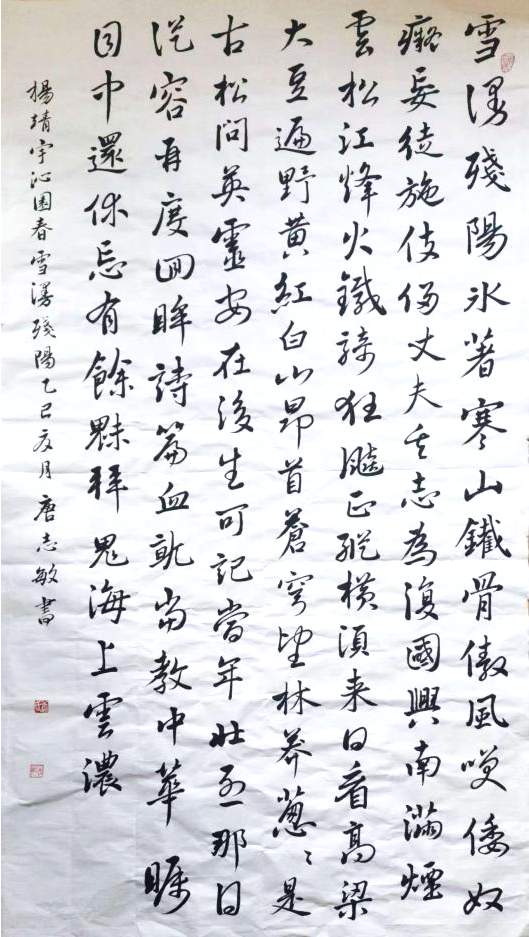 雪漫殘陽冰著寒山鐵骨傲風咲倭奴
癡妄徒施伎倆丈夫矢志為復國興南滿煙
雲松江烽火鐵騎狂飆正縱橫須来日看高粱
大豆遍野黃紅白山昂首蒼穹望林莽蔥〻是
古松問英靈安在後生可記當年壯烈那日
從容再度囬眸詩篇血就當教中華矚
目中還休忘有餘魅拜鬼海上雲濃
楊靖宇沁園春雪漫殘陽乙巳夏月唐志敏書